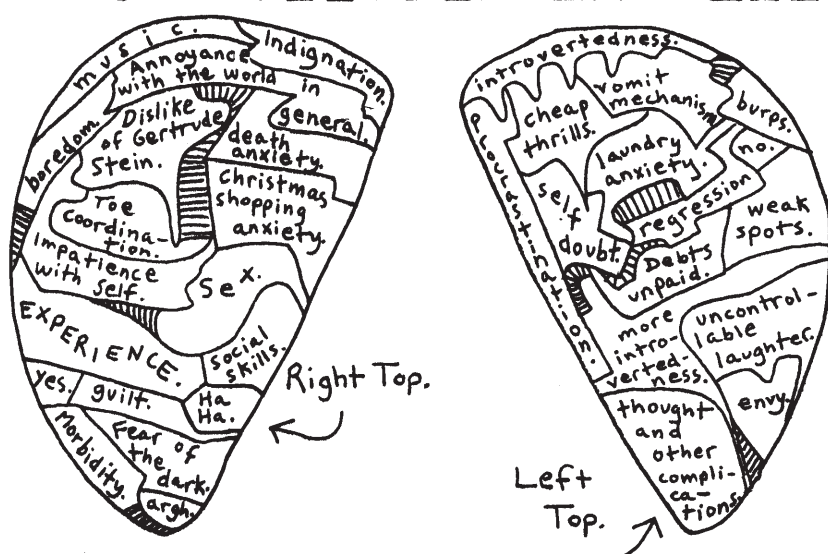 music.
Indignation.
Annoyance
with the world
in
general.
boredom.
Dislike
of Gertrude
Stein.
death
anxiety.
Christmas
shopping
anxiety.
Toe
Coordina-
tion.
Impatience
with self.
Sex.
EXPERIENCE.
social
skills.
yes.
guilt.
Ha
Ha.
Morbidity.
Fear of
the
dark.
argh.
Right Top.
introvertedness.
procrastination.
cheap
thrills.
vomit
mechanism
burps.
no.
laundry
anxiety.
self
doubt.
regression
weak
spots.
Debts
unpaid.
more
intro-
verted-
ness.
uncontrol-
lable
laughter.
envy.
thought
and
other
compli-
ca-
tions.
Left
Top.